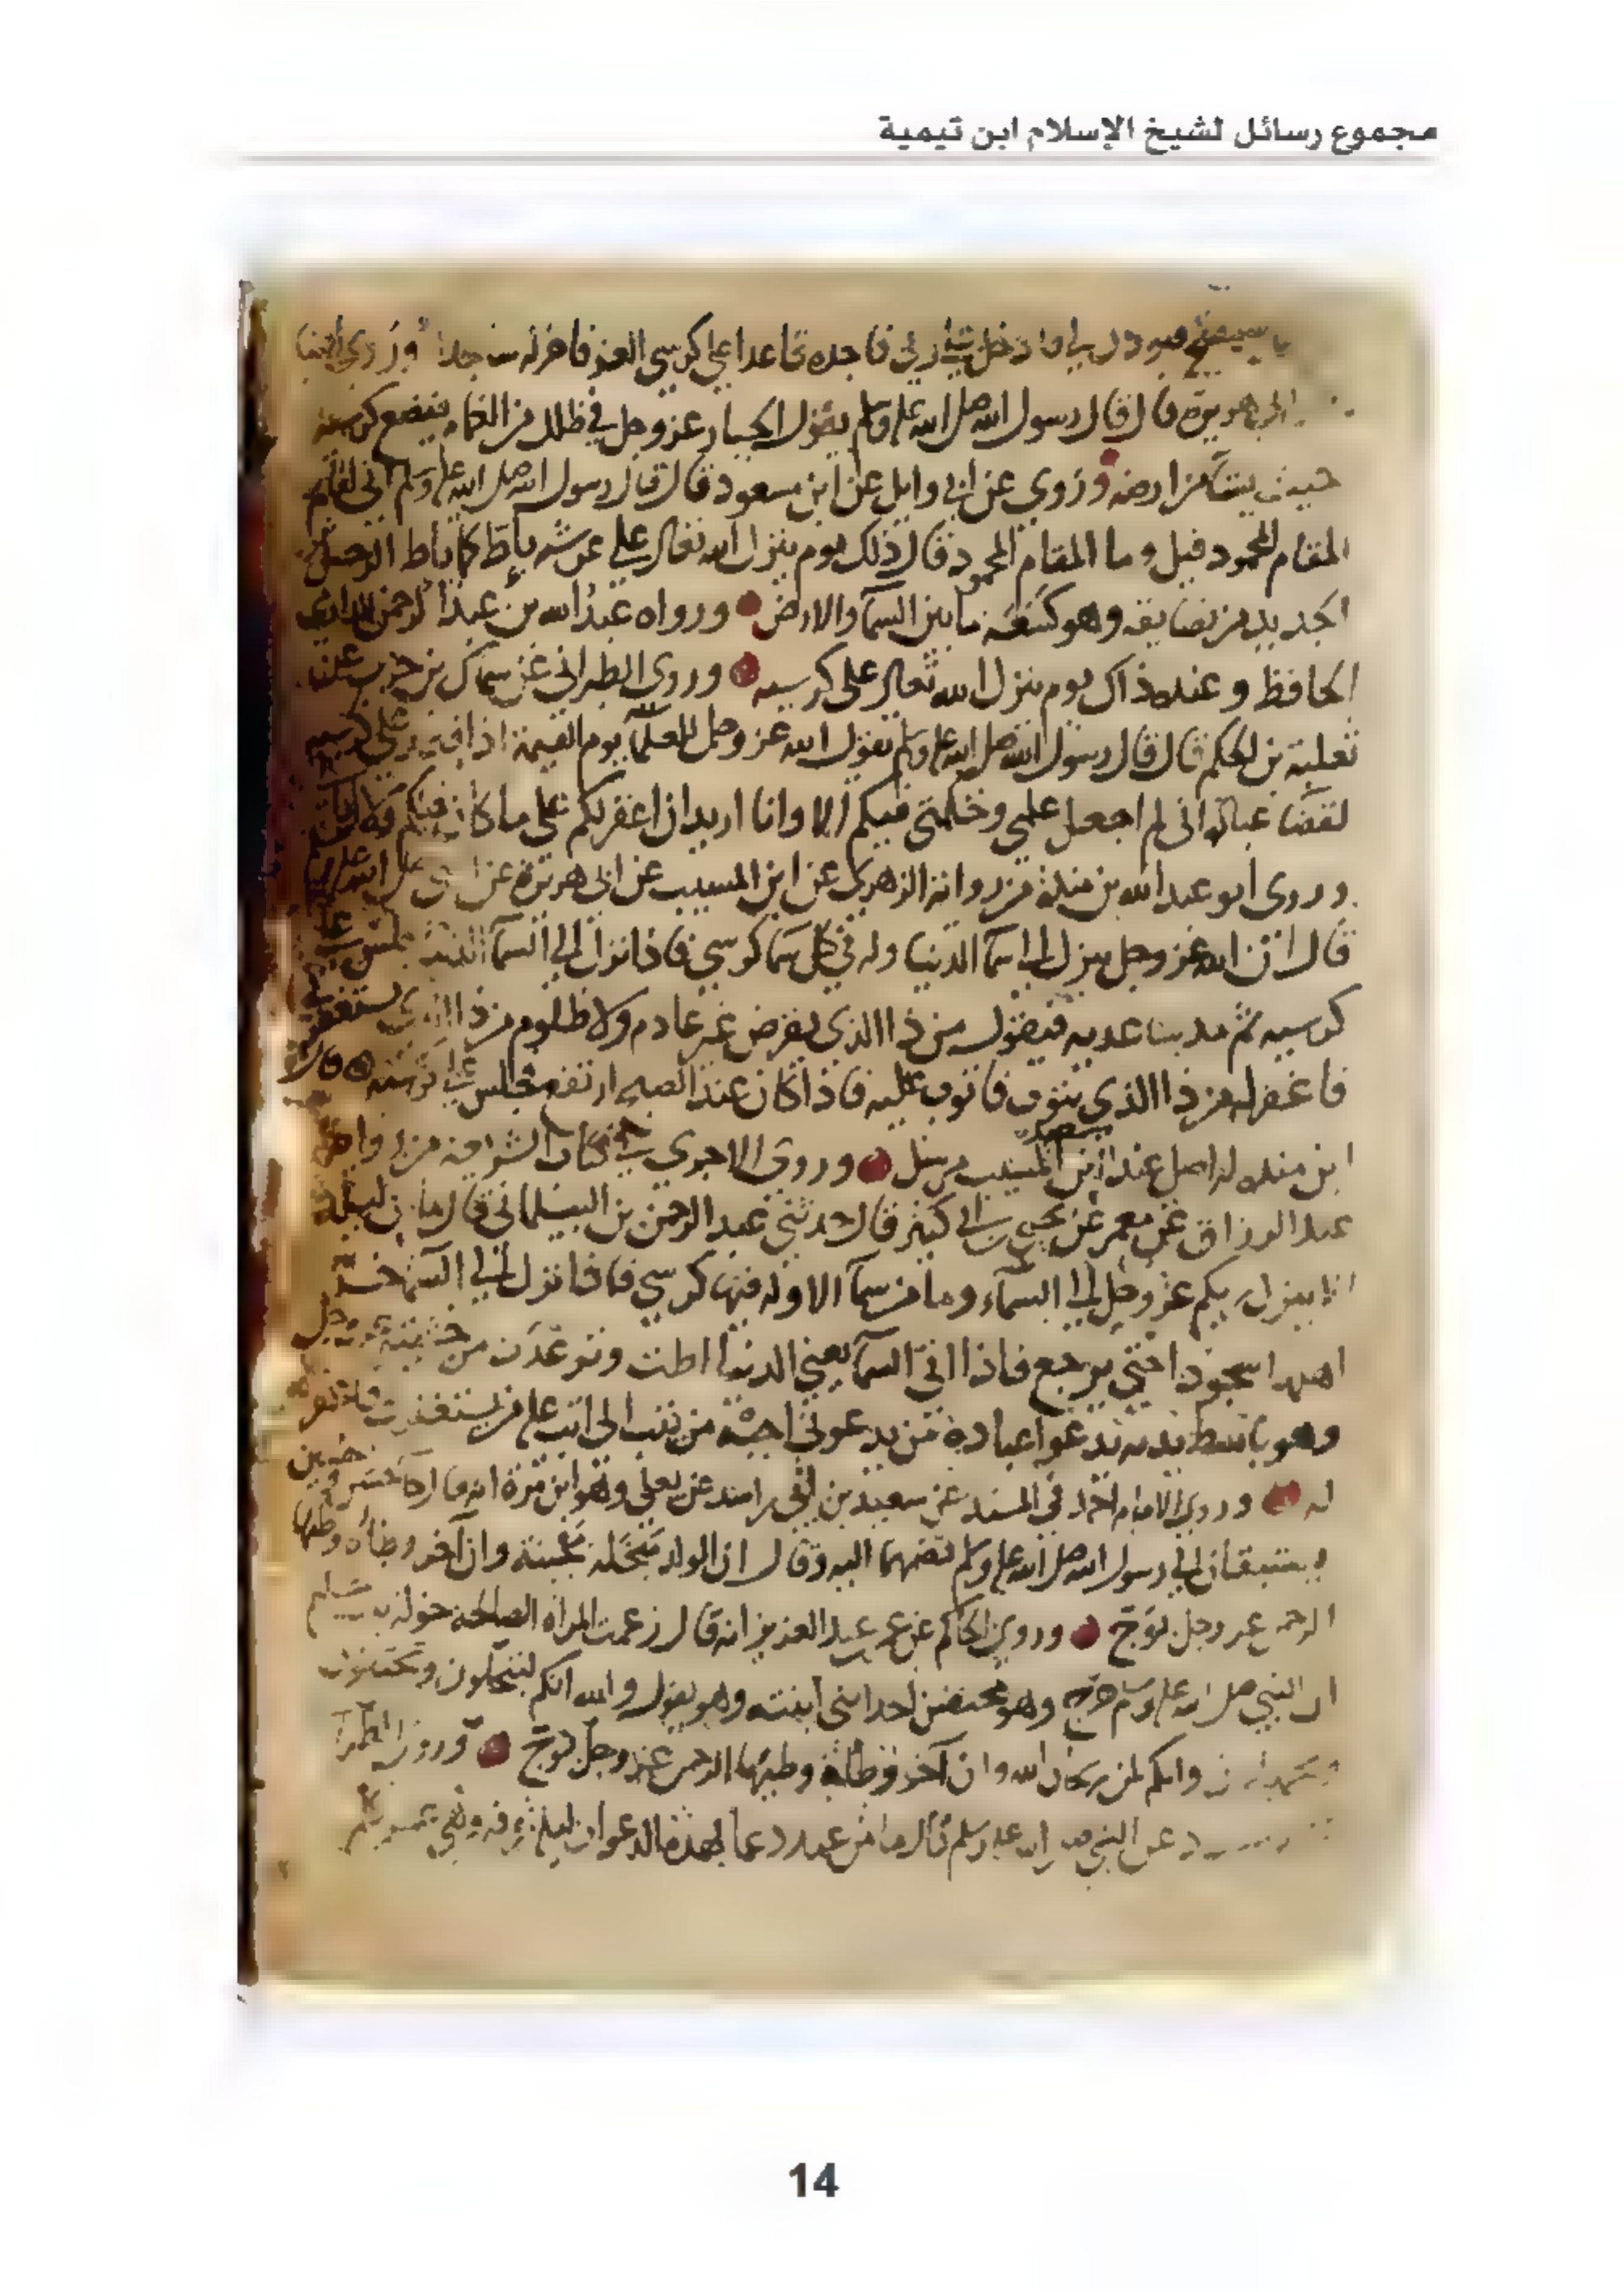 مجموع رسائل لشيخ الإسلام ابن تيمية
فاجده قاعدا على كرسي العز فاخر له ساجدا وروي ايضا
ابي هريرة قال قال رسول الله صلى الله عليه وسلم الجبار عز وجل في ظلل من الغمام فيضع كرسيه
حيث يشا من ارضه وروي عن ابي وايل عن ابن مسعود قال قال رسول الله صلى الله عليه وسلم اني لقايم
المقام المحمود قيل وما المقام المحمود قال ذلك يوم ينزل الله تعالى على عرشه ياط كما ياط الرحل
الجديد من تضايقه وهو كسعة ما بين السما والارض ورواه عبد الله بن عبد الرحمن الدارمي
الحافظ وعنده ذاك يوم ينزل الله تعالى على كرسيه وروى الطبراني عن سماك بن حرب عن
ثعلبة بن الحكم قال قال رسول الله صلى الله عليه وسلم يقول الله عز وجل للعلما يوم القيمة اذا على كرسيه
لقضا عباده اني لم اجعل علمي وحكمتي فيكم الا وانا اريد ان اغفر لكم على ما كان فيكم ولا ابالي
وروى ابو عبد الله بن منده من رواية الزهري عن ابن المسيب عن ابي هريرة عن
قال ان الله عز وجل ينزل الى سما الدنيا وله في كل سما كرسي فاذا نزل الى السما الدنيا جلس على
كرسيه ثم مد ساعديه فيقول من ذا الذي يقرض غير عادم ولا ظلوم من ذا الذي يستغفرني
فاغفر له من ذا الذي يتوب فاتوب عليه فاذا كان عند الصبح ارتفع فجلس على كرسيه قال
ابن منده له اصل عند سعيد ابن المسيب مرسل وروى الاجري في كتاب الشريعة من رواية
عبد الرزاق عن معمر عن يحيى بن ابي كثير قال حدثني عبد الرحمن بن البيلماني قال ما من ليلة
الا ينزل ربكم عز وجل الى السماء وما من سما الا وله فيها كرسي فاذا نزل الى السما خر
اهلها سجودا حتى يرجع فاذا اتى السما يعني الدنيا اطت وترعدت من خشية
وهو باسط يديه يدعوا عباده من يدعوني اجبه من يتب الي اتب عليه من يستغفرني فاغفر
له وروى الامام احمد في المسند عن سعيد بن ابي راشد عن يعلى وهو ابن مرة انه قال جا حسن وحسين
يستبقان الى رسول الله صلى الله عليه وسلم فضمهما اليه وقال ان الولد مبخلة مجبنة وان آخر وطأه وطيها
الرحمن عز وجل بوج وروى الحاكم عن عمر بن عبد العزيز انه قال زعمت المراة الصالحة خولة بنت حكيم
ان النبي صلى الله عليه وسلم خرج وهو محتضن احد ابني ابنته وهو يقول والله انكم لتبخلون وتجبنون
وانكم لمن ريحان الله وان آخر وطأة وطيها الرحمن عز وجل بوج وروى
عن النبي صلى الله عليه وسلم قال ما من عبد دعا بهذه الدعوات ليلة عرفة
14